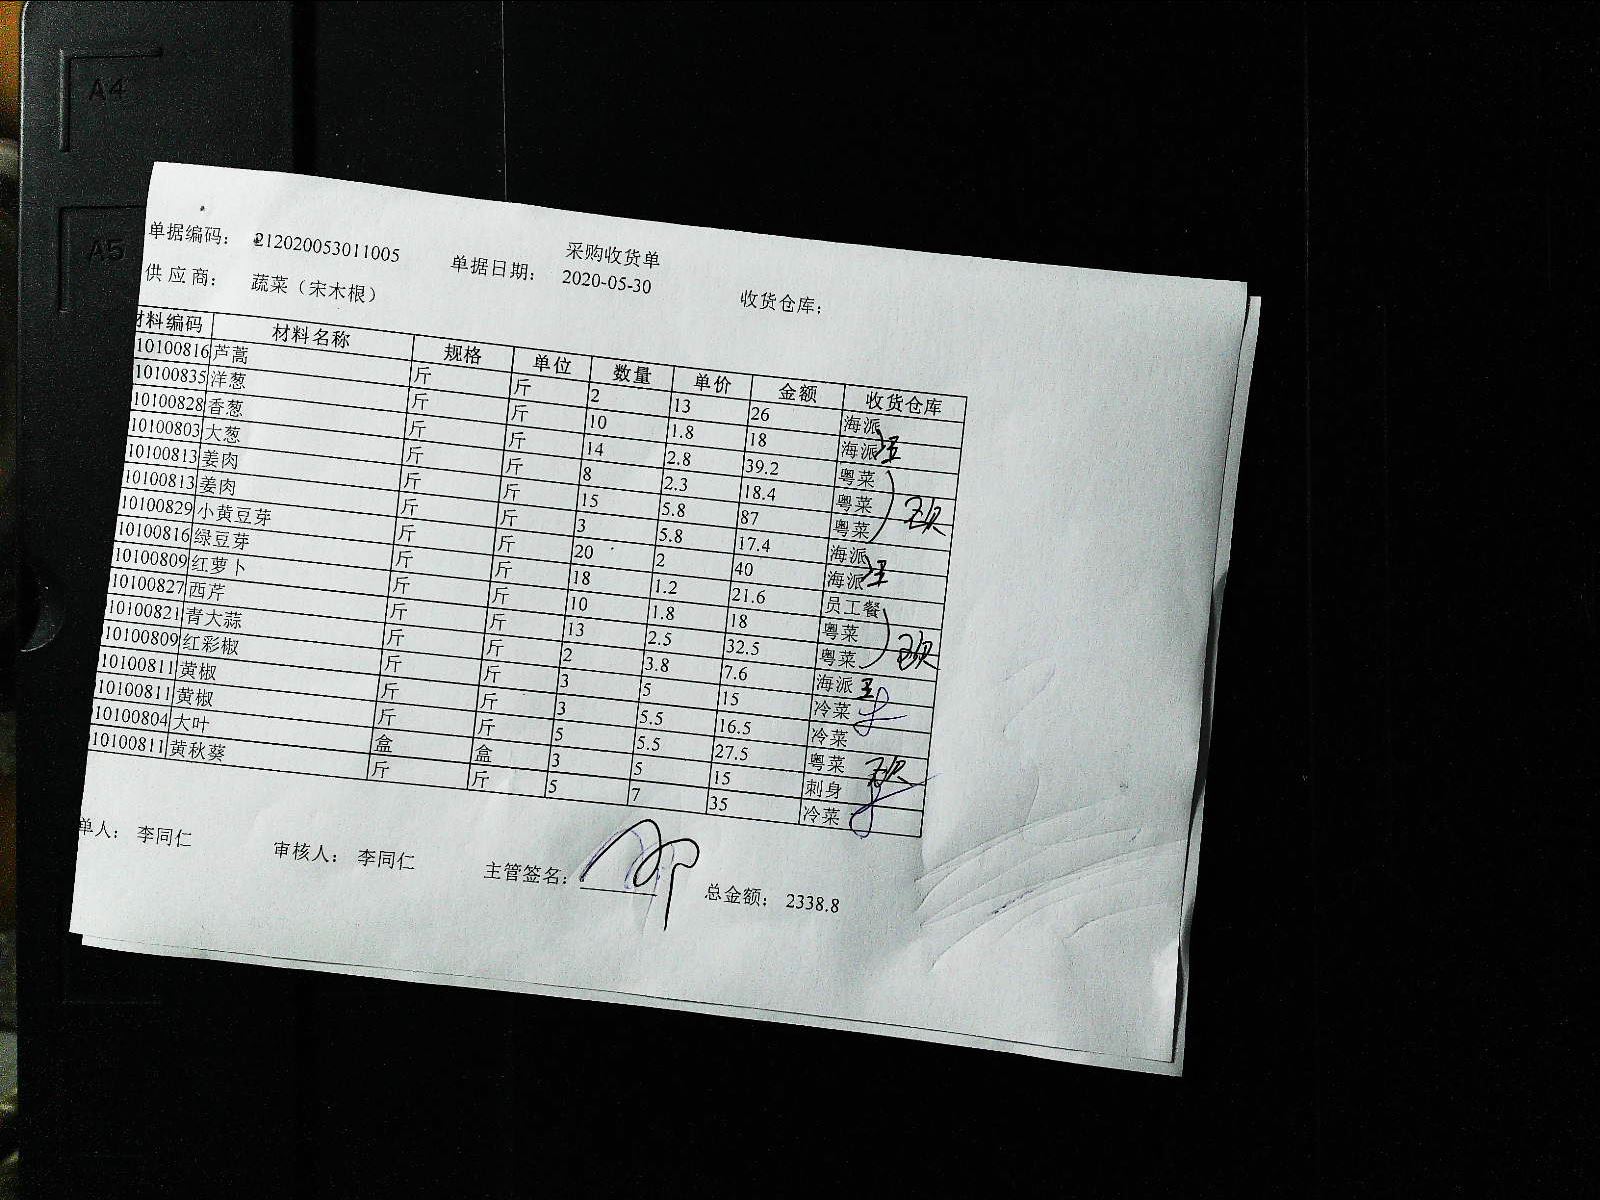 A4
A5
采购收货单
单据编码： 212020053011005 单据日期： 2020-05-30 收货仓库：
供 应 商： 蔬菜（宋木根）
材料编码 材料名称 规格 单位 数量 单价 金额 收货仓库
10100816 芦蒿 斤 斤 2 13 26 海派
10100835 洋葱 斤 斤 10 1.8 18 海派
10100828 香葱 斤 斤 14 2.8 39.2 粤菜
10100803 大葱 斤 斤 8 2.3 18.4 粤菜
10100813 姜肉 斤 斤 15 5.8 87 粤菜
10100813 姜肉 斤 斤 3 5.8 17.4 海派
10100829 小黄豆芽 斤 斤 20 2 40 海派
10100816 绿豆芽 斤 斤 18 1.2 21.6 员工餐
10100809 红萝卜 斤 斤 10 1.8 18 粤菜
10100827 西芹 斤 斤 13 2.5 32.5 粤菜
10100821 青大蒜 斤 斤 2 3.8 7.6 海派
10100809 红彩椒 斤 斤 3 5 15 冷菜
10100811 黄椒 斤 斤 3 5.5 16.5 冷菜
10100811 黄椒 斤 斤 5 5.5 27.5 粤菜
10100804 大叶 盒 盒 3 5 15 刺身
10100811 黄秋葵 斤 斤 5 7 35 冷菜
单人： 李同仁 审核人： 李同仁 主管签名： 总金额： 2338.8